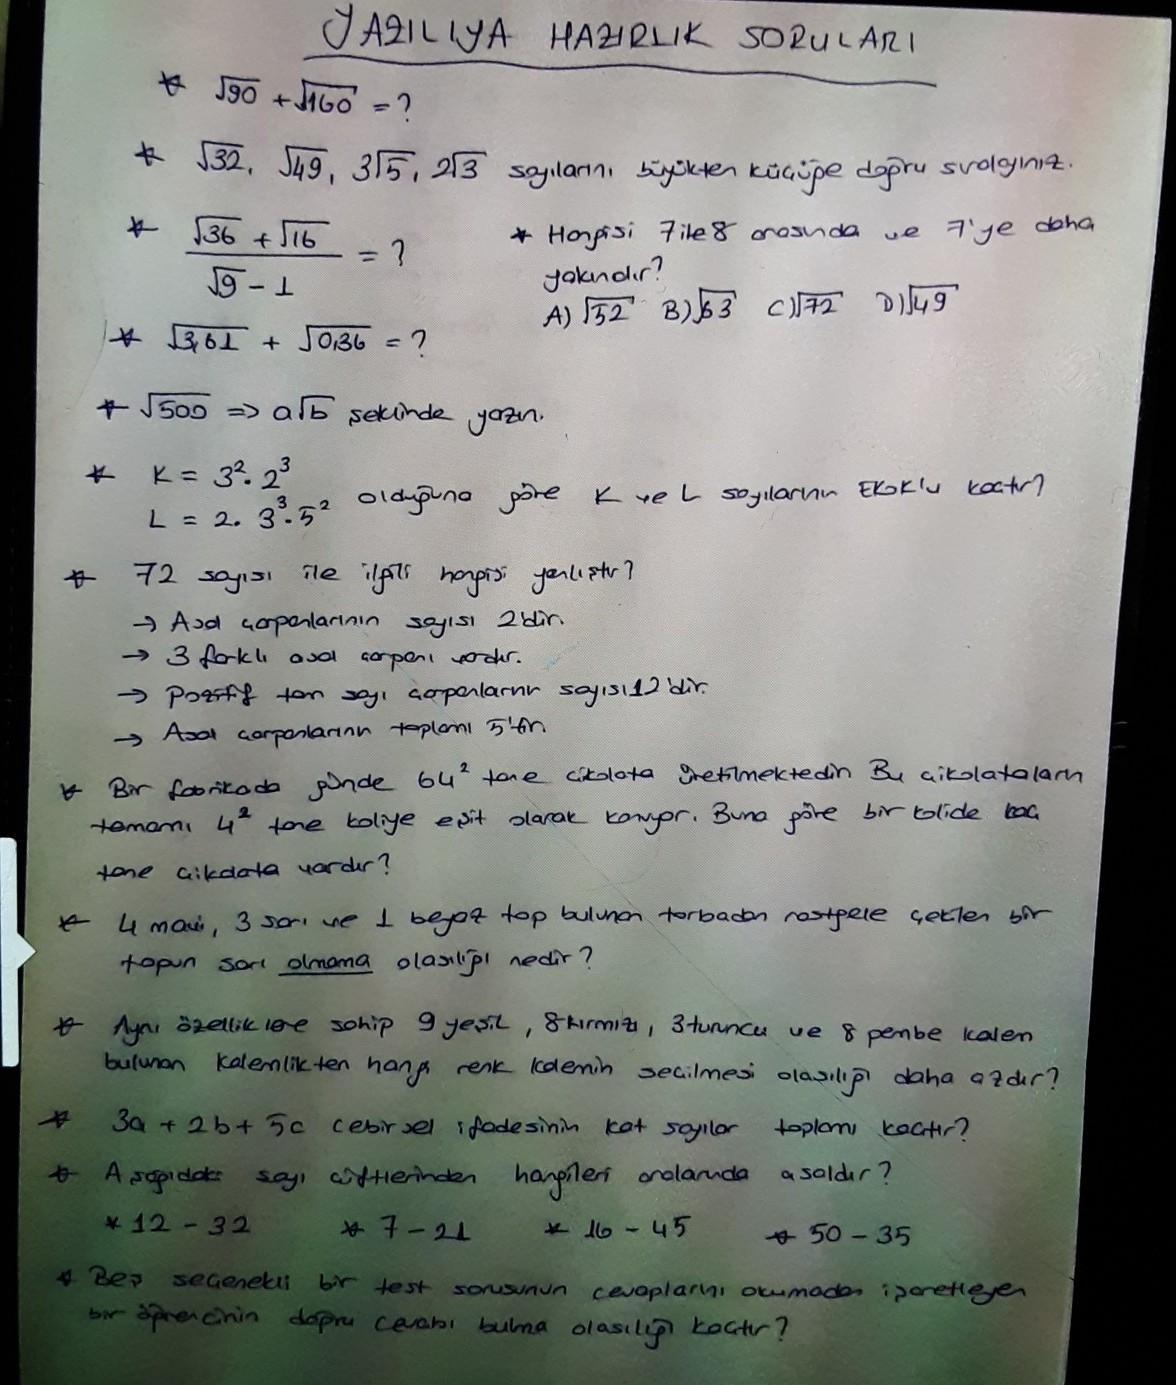 YAZILIYA HAZIRLIK SORULARI
* √90 + √160 = ?
* √32, √49, 3√5, 2√3 sayılarını büyükten küçüğe doğru sıralayınız.
* (√36 + √16) / (√9 - 1) = ?
* Hangisi 7 ile 8 arasında ve 7'ye daha
yakındır?
A) √52 B) √63 C) √72 D) √49
* √3,61 + √0,36 = ?
* √500 => a√b şeklinde yazın.
* K = 3². 2³
L = 2. 3³. 5² olduğuna göre K ve L sayılarının EKOK'u kaçtır?
* 72 sayısı ile ilgili hangisi yanlıştır?
→ Asal çarpanlarının sayısı 2'dir.
→ 3 farklı asal çarpanı vardır.
→ Pozitif tam sayı çarpanlarının sayısı 12'dir.
→ Asal çarpanlarının toplamı 5'tir.
* Bir fabrikada günde 64² tane çikolata üretilmektedir. Bu çikolataların
tamamı 4² tane koliye eşit olarak konuyor. Buna göre bir kolide kaç
tane çikolata vardır?
* 4 mavi, 3 sarı ve 1 beyaz top bulunan torbadan rastgele çekilen bir
topun sarı olmama olasılığı nedir?
* Aynı özelliklere sahip 9 yeşil, 8 kırmızı, 3 turuncu ve 8 pembe kalem
bulunan kalemlikten hangi renk kalemin seçilmesi olasılığı daha azdır?
* 3a + 2b + 5c cebirsel ifadesinin kat sayılar toplamı kaçtır?
* Aşağıdaki sayı çiftlerinden hangileri aralarında asaldır?
* 12 - 32 * 7 - 21 * 16 - 45 * 50 - 35
* Beş seçenekli bir test sorusunun cevaplarını okumadan işaretleyen
bir öğrencinin doğru cevabı bulma olasılığı kaçtır?